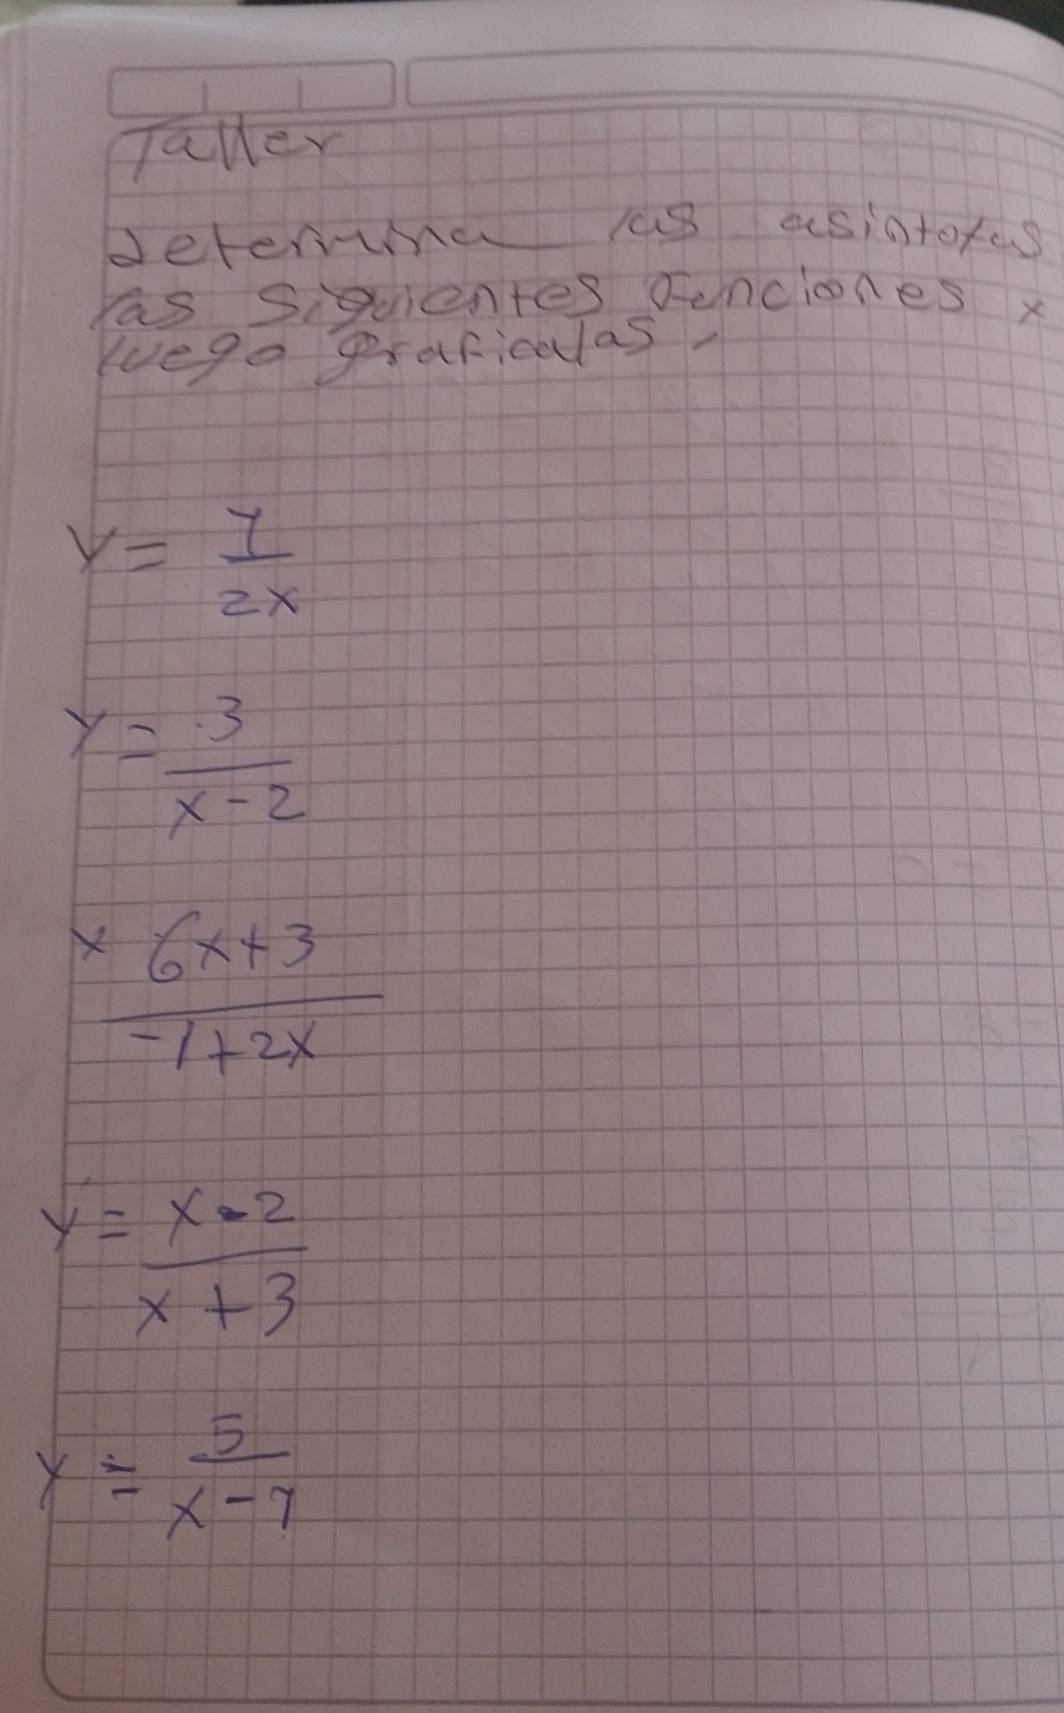 Taller
determina las asintotas
las siguientes funciones x
luego graficalas.
y = 1
2x
y = 3
x - 2
x 6x + 3
-1 + 2x
y = x - 2
x + 3
y = 5
x - 7